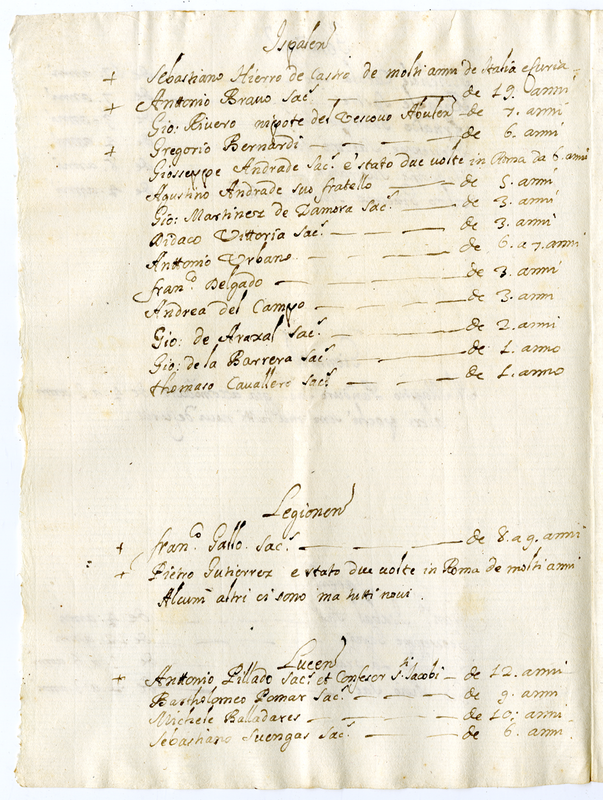 Ispalen
+ Sebastiano Hierro de Castro de molti anni de Italia e Curia.
+ Anttonio Bravo Sac.ᵉ — — de 19. anni
Gio: Rivero nipote del Vescovo Abulen — de 7. anni
+ Gregorio Bernardi — — — de 6. anni
Giosseppe Andrade Sac.ᵉ è stato due volte in Roma da 6. anni
Agustino Andrade suo fratello — — de 5. anni
Gio: Martinez de Zamora Sac.ᵉ — de 3. anni
Didaco Vittoria Sac.ᵉ — — — de 3. anni
Anttonio Urbano — — — de 6. a 7. anni
Fran.ᶜᵒ Delgado — — — de 3. anni
Andrea del Campo — — — de 3. anni
Gio: de Araxal Sac.ᵉ — — — de 2. anni
Gio: de la Barrera Sac.ᵉ — — de 1. anno
Thomaso Cavallero Sac.ᵉ — — — de 1. anno
Legionen
+ Fran.ᶜᵒ Gallo. Sac.ᵉ — — de 8. a 9. anni
+ Pietro Gutierrez e stato due volte in Roma de molti anni
Alcuni altri ci sono ma tutti novi.
Lucen
+ Anttonio Pillado Sac.ᵉ et Confesor S.ᵗⁱ Jacobi — de 12. anni
Bartholomeo Pomar Sac.ᵉ — — de 9. anni
Michele Balladares — — — de 10. anni
Sebastiano Suengas Sac.ᵉ — — — de 6. anni